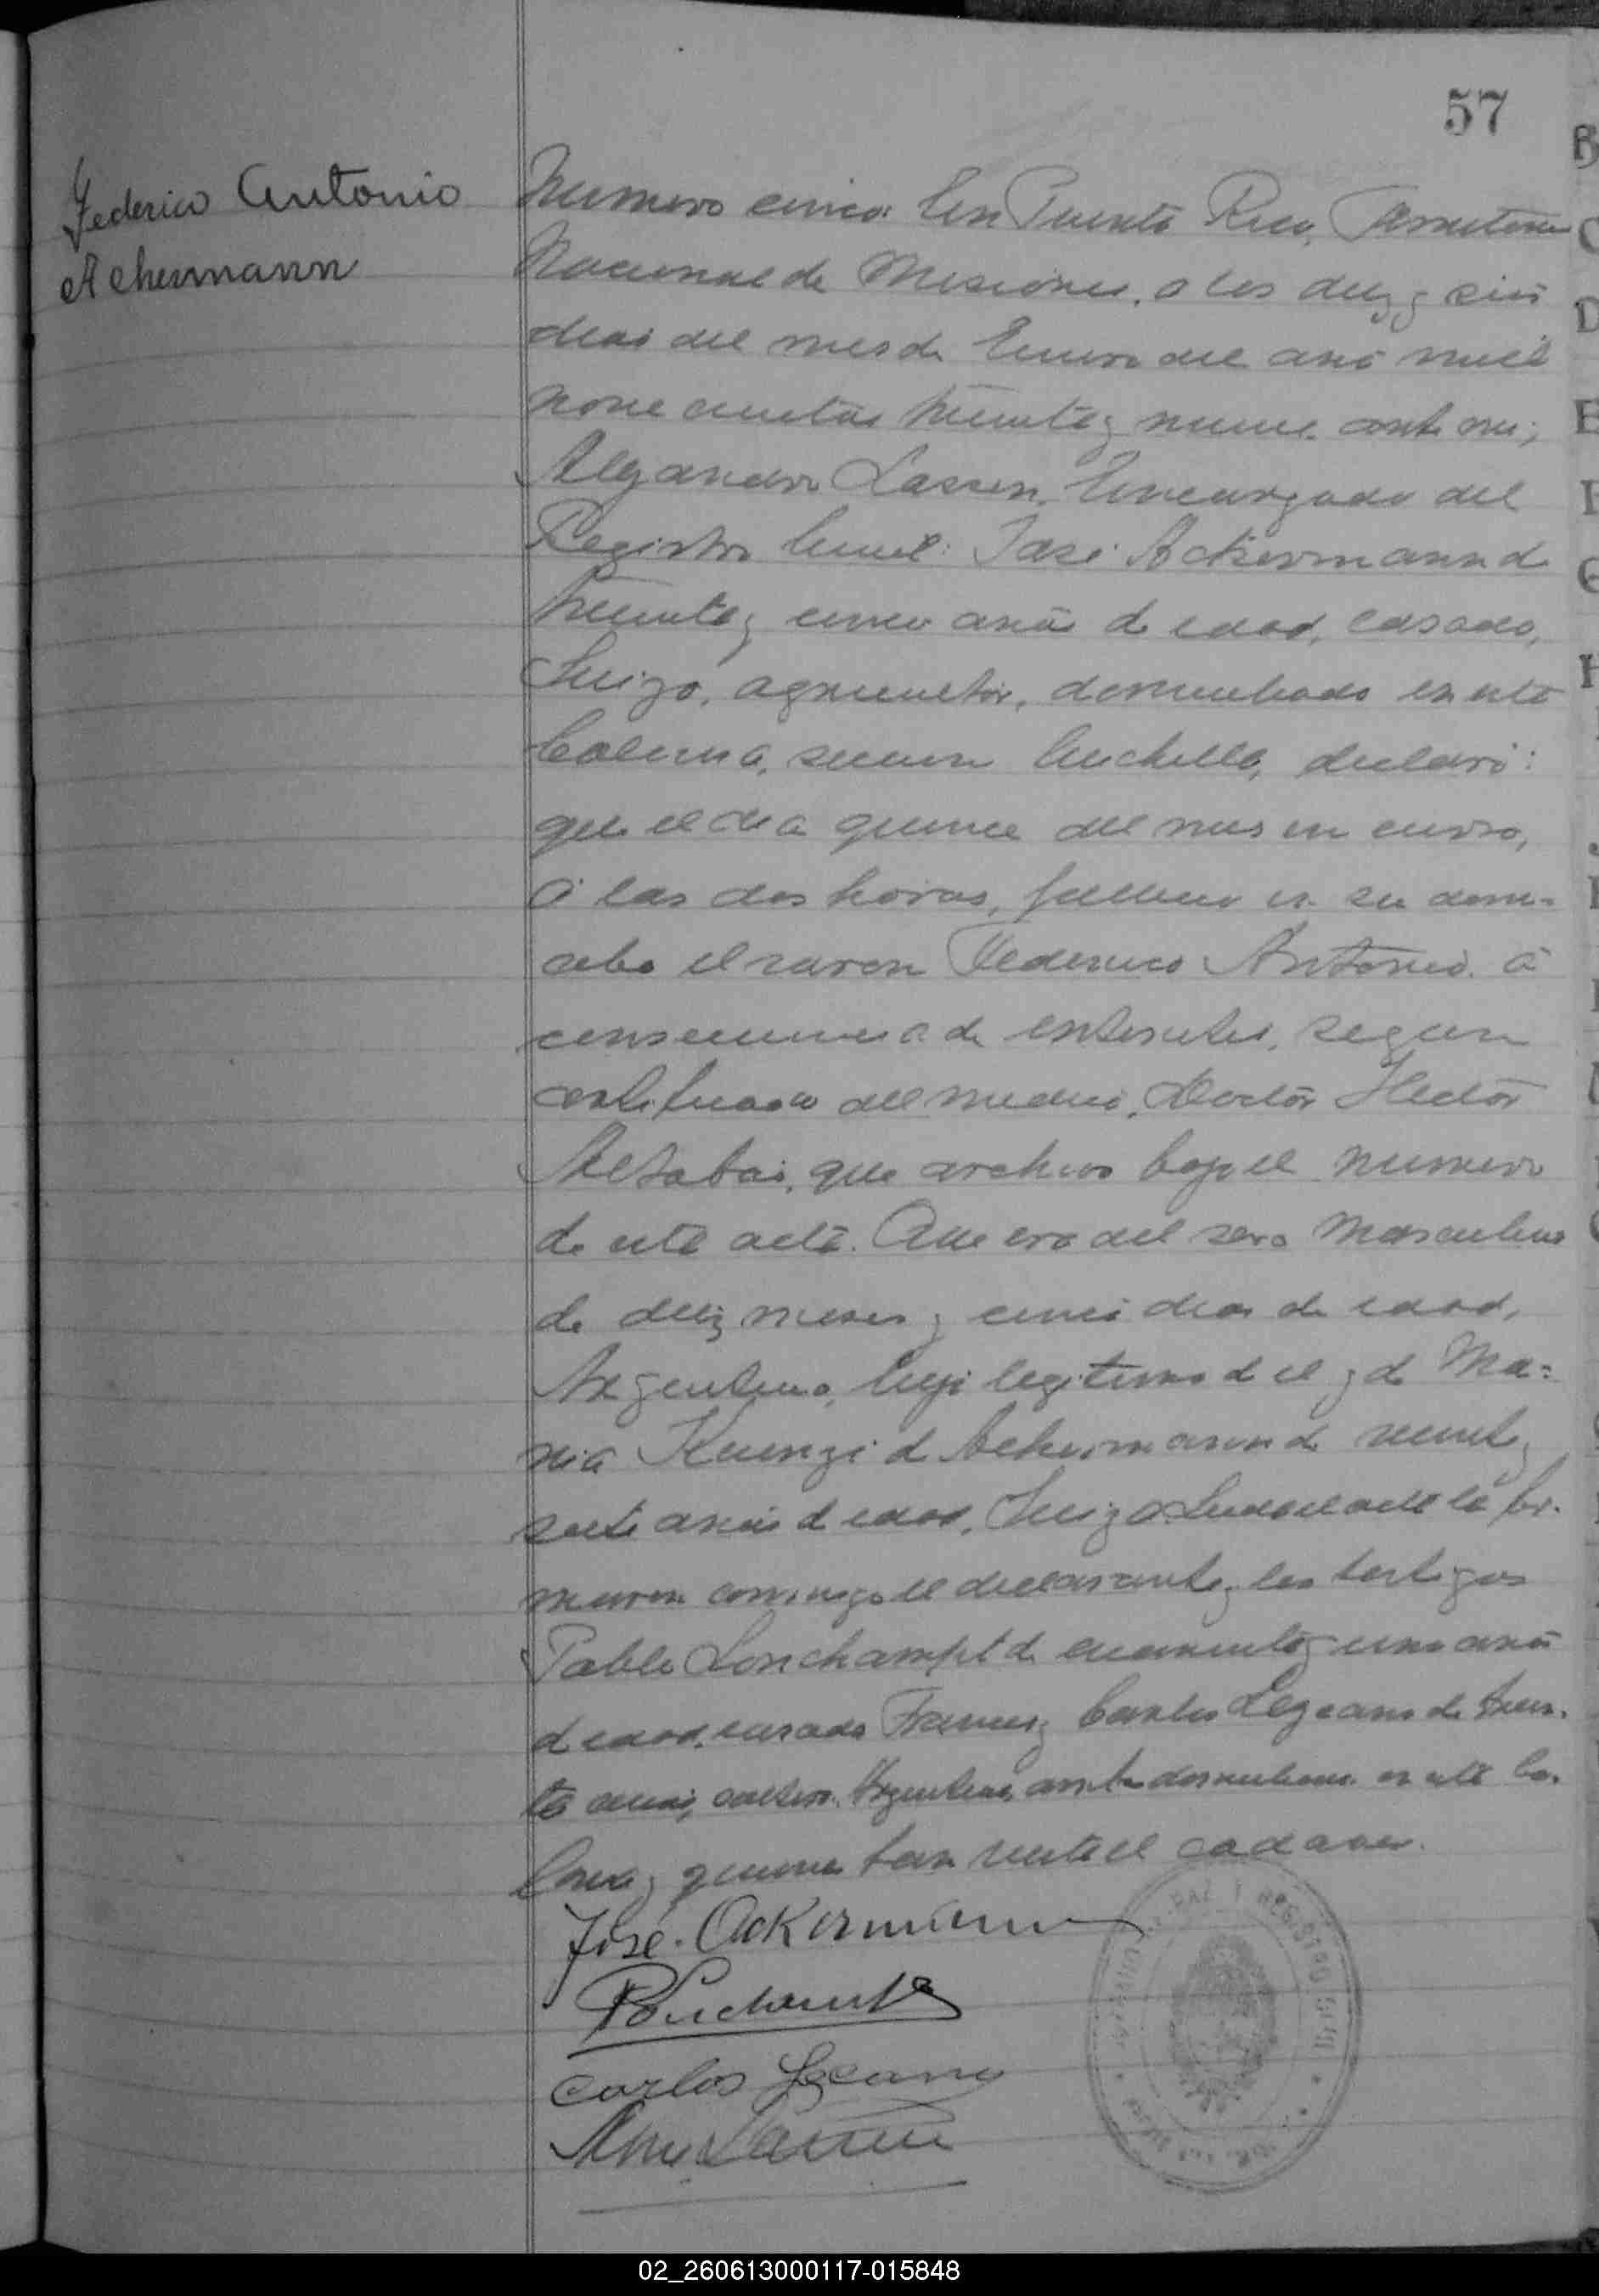 57
Federico Antonio
Achermann
Numero cinco: En Puerto Rico, Territorio
Nacional de Misiones, a los diez y seis
dias del mes de Enero del año mil
novecientos treinta y nueve ante mi,
Alejandro Lassen, Encargado del
Registro Civil: José Ackermann de
treinta y cinco años de edad, casado,
Suizo, agricultor, domiciliado en esta
Colonia, seccion Cuchilla, declaró:
que el dia quince del mes en curso,
á las dos horas, fallecio en su domi-
cilio el varon Federico Antonio á
consecuencia de enteritis, segun
certificado del medico, Doctor Hector
que archivo bajo el numero
de esta acta. Que era del sexo masculino
de diez meses y cinco dias de edad,
Argentino, hijo legitimo de el y de Ma=
ria Kuenzi de Achermann de veinte y
siete años de edad, Suiza. Leida el acta la fir-
maron conmigo el declarante y los testigos
Pablo Lonchampt de cuarenta y un años
de edad, casado Frances y Carlos Lezcano de trein-
ta años, soltero, Argentino, ambos domiciliados en esta Co-
lonia y quienes han visto el cadaver.
José Ackermann
Carlos Lezcano
PAZ Y REGISTRO CIVIL
02_260613000117-015848